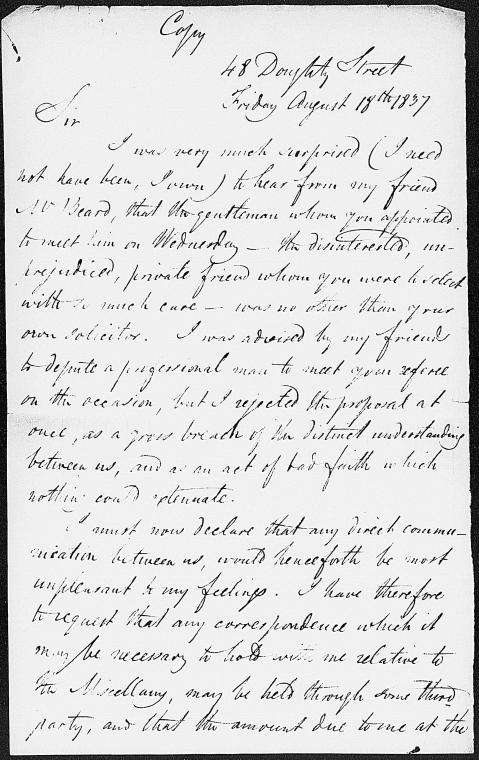 Copy
48 Doughty Street
Friday August 18th 1837
Sir
I was very much surprised (I need
not have been, I own) to hear from my friend
Mr Beard, that the gentleman whom you appointed
to meet him on Wednesday — the disinterested, un-
prejudiced, private friend whom you were to select
with so much care — was no other than your
own solicitor. I was advised by my friends
to depute a professional man to meet your referee
on the occasion, but I rejected the proposal at
once, as a gross breach of the distinct understanding
between us, and as an act of bad faith which
nothing could extenuate.
I must now declare that any direct commu-
nication between us, would henceforth be most
unpleasant to my feelings. I have therefore
to request that any correspondence which it
may be necessary to hold with me relative to
the Miscellany, may be held through some third
party, and that the amount due to me at the